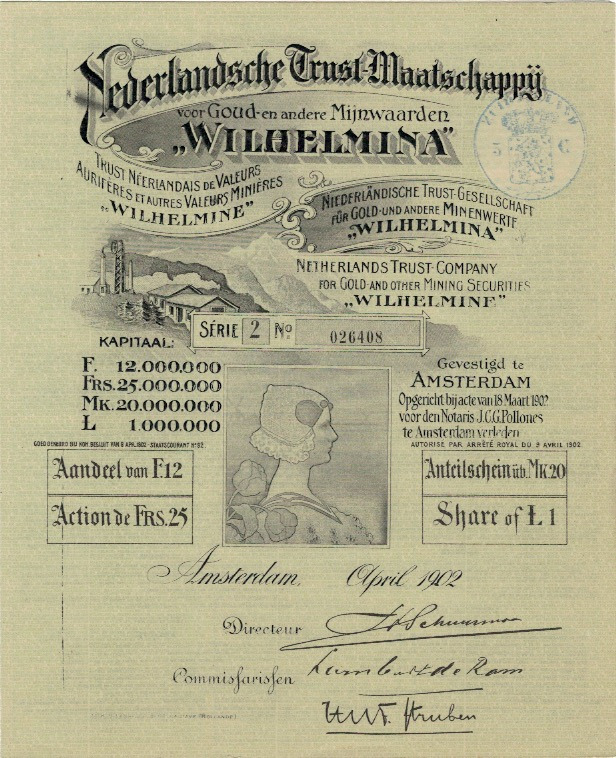 Nederlandsche Trust-Maatschappij
voor Goud-en andere Mijnwaarden
„WILHELMINA"
TRUST NÉERLANDAIS DE VALEURS
AURIFÈRES ET AUTRES VALEURS MINIÈRES
„WILHELMINE"
NIEDERLÄNDISCHE TRUST-GESELLSCHAFT
FÜR GOLD-UND ANDERE MINENWERTE
„WILHELMINA"
NETHERLANDS TRUST-COMPANY
FOR GOLD-AND OTHER MINING SECURITIES
„WILHELMINE"
5 C
SÉRIE 2 No. 026408
KAPITAAL:
F. 12.000.000
FRS. 25.000.000
MK. 20.000.000
L 1.000.000
Gevestigd te
AMSTERDAM
Opgericht bij acte van 18 Maart 1902
voor den Notaris J.C.G. Pollones
te Amsterdam verleden
GOEDGEKEURD BIJ KON. BESLUIT VAN 9 APRIL 1902 - STAATSCOURANT No 92.
AUTORISÉ PAR ARRÊTÉ ROYAL DU 9 AVRIL 1902
Aandeel van F.12
Action de FRS. 25
Anteilschein üb. MK. 20
Share of Ł 1
Amsterdam, April 1902
Directeur
Commissarissen
Struben
(HOLLANDE)